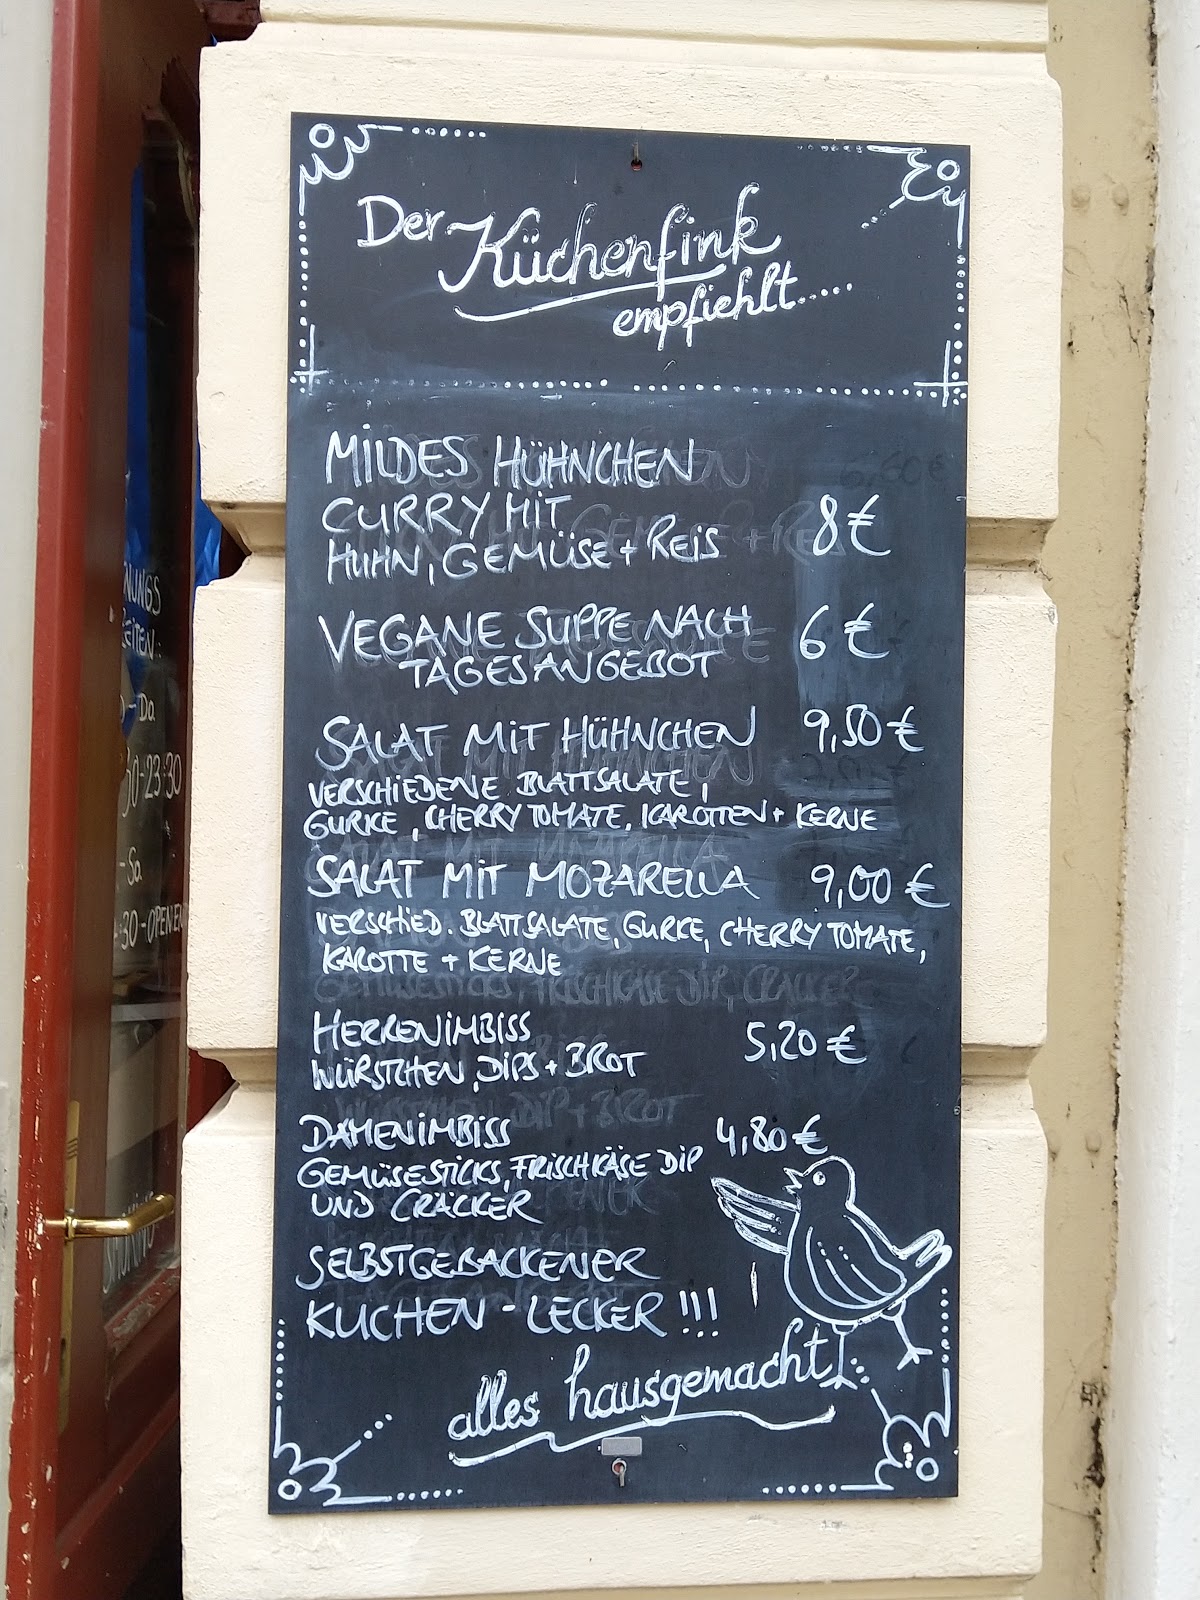 Der Küchenfink
empfiehlt.....
MILDES HÜHNCHEN
CURRY MIT
HUHN, GEMÜSE + REIS 8€
VEGANE SUPPE NACH 6€
TAGESANGEBOT
SALAT MIT HÜHNCHEN 9,50€
VERSCHIEDENE BLATTSALATE,
GURKE, CHERRY TOMATE, KAROTTEN + KERNE
SALAT MIT MOZARELLA 9,00€
VERSCHIED. BLATTSALATE, GURKE, CHERRY TOMATE,
KAROTTE + KERNE
HERRENIMBISS 5,20€
WÜRSTCHEN, DIPS + BROT
DAMENIMBISS 4,80€
GEMÜSESTICKS, FRISCHKÄSE DIP
UND CRÄCKER
SELBSTGEBACKENER
KUCHEN - LECKER!!!
alles hausgemacht!
NUNGS
ZEITEN:
- Da
00-23:30
- Sa
:30-OPEN E